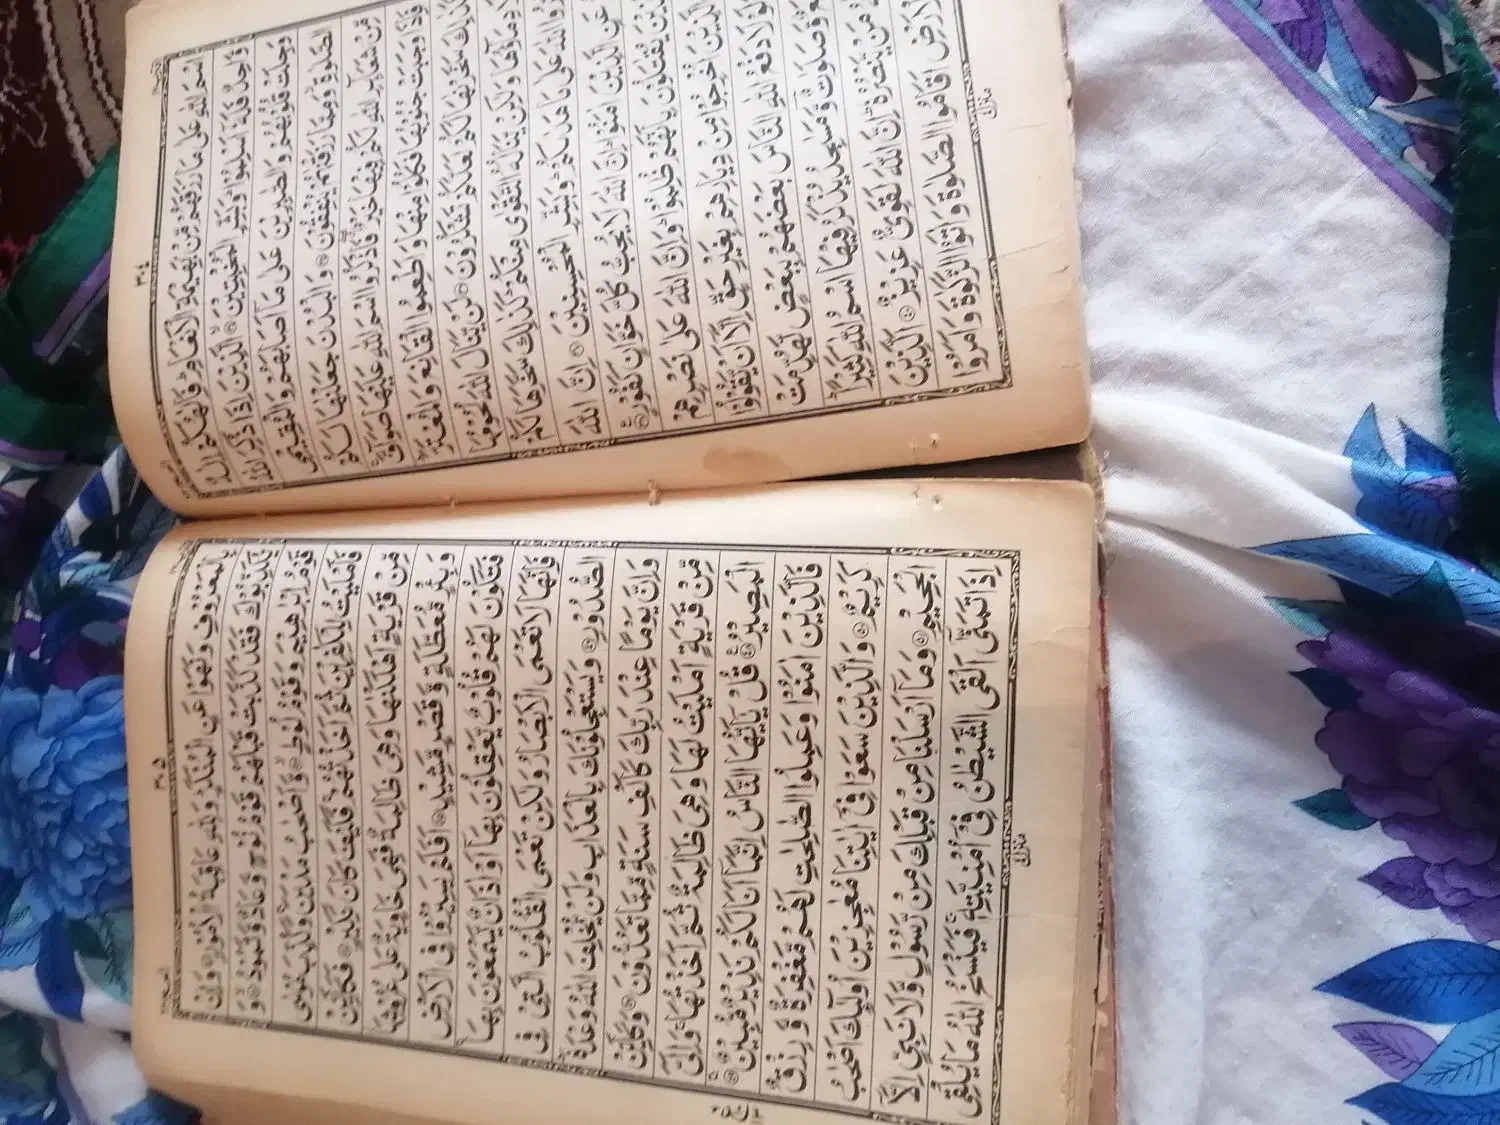 اسْمَ اللّٰهِ عَلٰى مَا رَزَقَهُمْ مِّنْۢ بَهِيْمَةِ الْاَنْعَامِ ؕ فَاِلٰهُكُمْ اِلٰهٌ
وَّاحِدٌ فَلَهٗۤ اَسْلِمُوْا ؕ وَبَشِّرِ الْمُخْبِتِيْنَ ۙ الَّذِيْنَ اِذَا ذُكِرَ اللّٰهُ
وَجِلَتْ قُلُوْبُهُمْ وَالصّٰبِرِيْنَ عَلٰى مَاۤ اَصَابَهُمْ وَالْمُقِيْمِى
الصَّلٰوةِ ۙ وَمِمَّا رَزَقْنٰهُمْ يُنْفِقُوْنَ وَالْبُدْنَ جَعَلْنٰهَا لَكُمْ
مِّنْ شَعَآئِرِ اللّٰهِ لَكُمْ فِيْهَا خَيْرٌ ۖ فَاذْكُرُوا اسْمَ اللّٰهِ عَلَيْهَا صَوَآفَّ ۚ
فَاِذَا وَجَبَتْ جُنُوْبُهَا فَكُلُوْا مِنْهَا وَاَطْعِمُوا الْقَانِعَ وَالْمُعْتَرَّ ؕ
كَذٰلِكَ سَخَّرْنٰهَا لَكُمْ لَعَلَّكُمْ تَشْكُرُوْنَ لَنْ يَّنَالَ اللّٰهَ لُحُوْمُهَا
وَلَا دِمَآؤُهَا وَلٰكِنْ يَّنَالُهُ التَّقْوٰى مِنْكُمْ ؕ كَذٰلِكَ سَخَّرَهَا لَكُمْ
اللّٰهَ عَلٰى مَا هَدٰىكُمْ ؕ وَبَشِّرِ الْمُحْسِنِيْنَ اِنَّ اللّٰهَ
عَنِ الَّذِيْنَ اٰمَنُوْا ؕ اِنَّ اللّٰهَ لَا يُحِبُّ كُلَّ خَوَّانٍ كَفُوْرٍ
يُقٰتَلُوْنَ بِاَنَّهُمْ ظُلِمُوْا ؕ وَاِنَّ اللّٰهَ عَلٰى نَصْرِهِمْ
الَّذِيْنَ اُخْرِجُوْا مِنْ دِيَارِهِمْ بِغَيْرِ حَقٍّ اِلَّاۤ اَنْ يَّقُوْلُوْا
وَلَوْلَا دَفْعُ اللّٰهِ النَّاسَ بَعْضَهُمْ بِبَعْضٍ لَّهُدِّمَتْ
وَّصَلَوٰتٌ وَّمَسٰجِدُ يُذْكَرُ فِيْهَا اسْمُ اللّٰهِ كَثِيْرًا ؕ
مَنْ يَّنْصُرُهٗ ؕ اِنَّ اللّٰهَ لَقَوِىٌّ عَزِيْزٌ اَلَّذِيْنَ
الْاَرْضِ اَقَامُوا الصَّلٰوةَ وَاٰتَوُا الزَّكٰوةَ وَاَمَرُوْا
۳۰۴
منزل ٤
۳۰۵
بِالْمَعْرُوْفِ وَنَهَوْا عَنِ الْمُنْكَرِ ؕ وَلِلّٰهِ عَاقِبَةُ الْاُمُوْرِ وَاِنْ
يُّكَذِّبُوْكَ فَقَدْ كَذَّبَتْ قَبْلَهُمْ قَوْمُ نُوْحٍ وَّعَادٌ وَّثَمُوْدُ ۙ وَ
قَوْمُ اِبْرٰهِيْمَ وَقَوْمُ لُوْطٍ ۙ وَّاَصْحٰبُ مَدْيَنَ ۚ وَكُذِّبَ مُوْسٰى
فَاَمْلَيْتُ لِلْكٰفِرِيْنَ ثُمَّ اَخَذْتُهُمْ ۚ فَكَيْفَ كَانَ نَكِيْرِ فَكَاَيِّنْ
مِّنْ قَرْيَةٍ اَهْلَكْنٰهَا وَهِىَ ظَالِمَةٌ فَهِىَ خَاوِيَةٌ عَلٰى عُرُوْشِهَا
وَبِئْرٍ مُّعَطَّلَةٍ وَّقَصْرٍ مَّشِيْدٍ اَفَلَمْ يَسِيْرُوْا فِى الْاَرْضِ
فَتَكُوْنَ لَهُمْ قُلُوْبٌ يَّعْقِلُوْنَ بِهَاۤ اَوْ اٰذَانٌ يَّسْمَعُوْنَ بِهَا ۚ
فَاِنَّهَا لَا تَعْمَى الْاَبْصَارُ وَلٰكِنْ تَعْمَى الْقُلُوْبُ الَّتِىْ فِى
الصُّدُوْرِ وَيَسْتَعْجِلُوْنَكَ بِالْعَذَابِ وَلَنْ يُّخْلِفَ اللّٰهُ وَعْدَهٗ ؕ
وَاِنَّ يَوْمًا عِنْدَ رَبِّكَ كَاَلْفِ سَنَةٍ مِّمَّا تَعُدُّوْنَ وَكَاَيِّنْ
مِّنْ قَرْيَةٍ اَمْلَيْتُ لَهَا وَهِىَ ظَالِمَةٌ ثُمَّ اَخَذْتُهَا ۚ وَاِلَىَّ
الْمَصِيْرُ قُلْ يٰۤاَيُّهَا النَّاسُ اِنَّمَاۤ اَنَا لَكُمْ نَذِيْرٌ مُّبِيْنٌ ۚ
فَالَّذِيْنَ اٰمَنُوْا وَعَمِلُوا الصّٰلِحٰتِ لَهُمْ مَّغْفِرَةٌ وَّرِزْقٌ
كَرِيْمٌ وَالَّذِيْنَ سَعَوْا فِىْۤ اٰيٰتِنَا مُعٰجِزِيْنَ اُولٰٓئِكَ اَصْحٰبُ
الْجَحِيْمِ وَمَاۤ اَرْسَلْنَا مِنْ قَبْلِكَ مِنْ رَّسُوْلٍ وَّلَا نَبِىٍّ اِلَّاۤ
اِذَا تَمَنّٰىۤ اَلْقَى الشَّيْطٰنُ فِىْۤ اُمْنِيَّتِهٖ ۚ فَيَنْسَخُ اللّٰهُ مَا يُلْقِى
منزل ٤